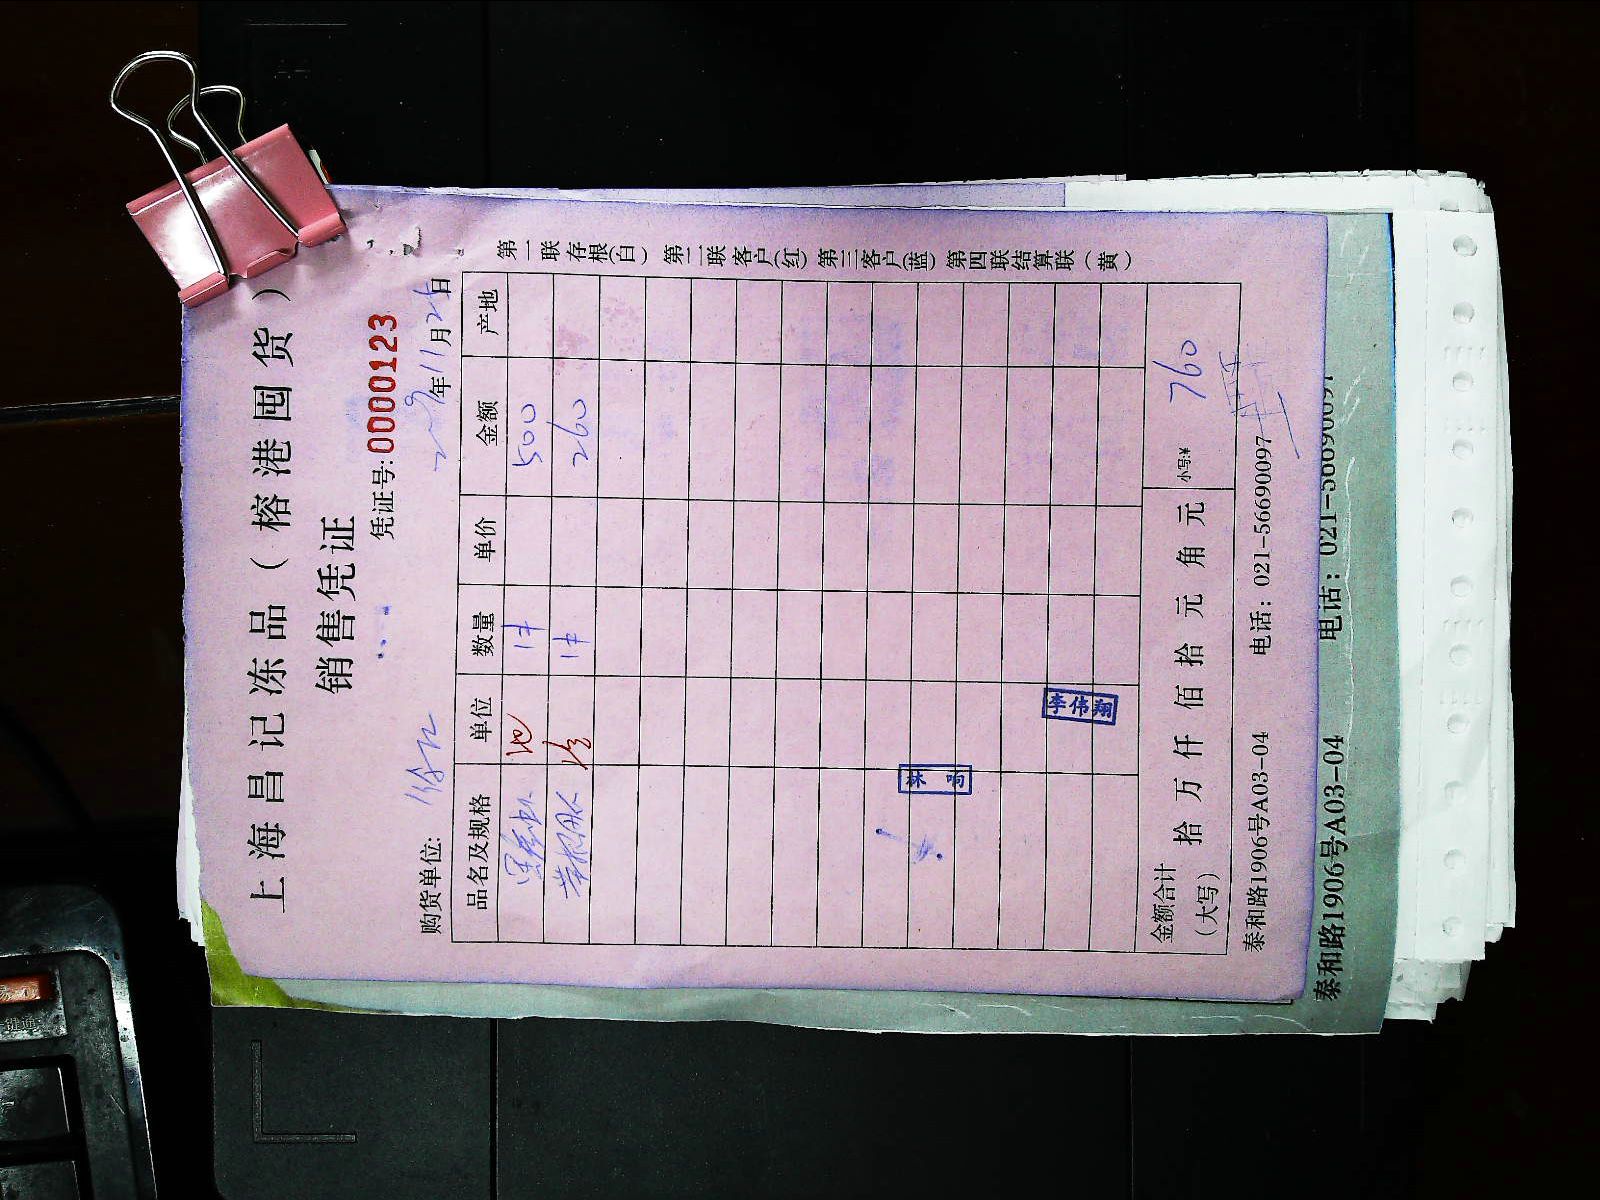 上海昌记冻品（榕港囤货）
销售凭证
凭证号:0000123
购货单位:
年11月25日
品名及规格 单位 数量 单价 金额 产地
1件 500
1件 260
李伟翔
金额合计（大写） 拾 万 仟 佰 拾 元 角 元 小写:¥ 760
泰和路1906号A03-04 电话：021-56690097
第一联存根(白) 第二联客户(红) 第三客户(蓝) 第四联结算联（黄）
泰和路1906号A03-04 电话：021-56690097